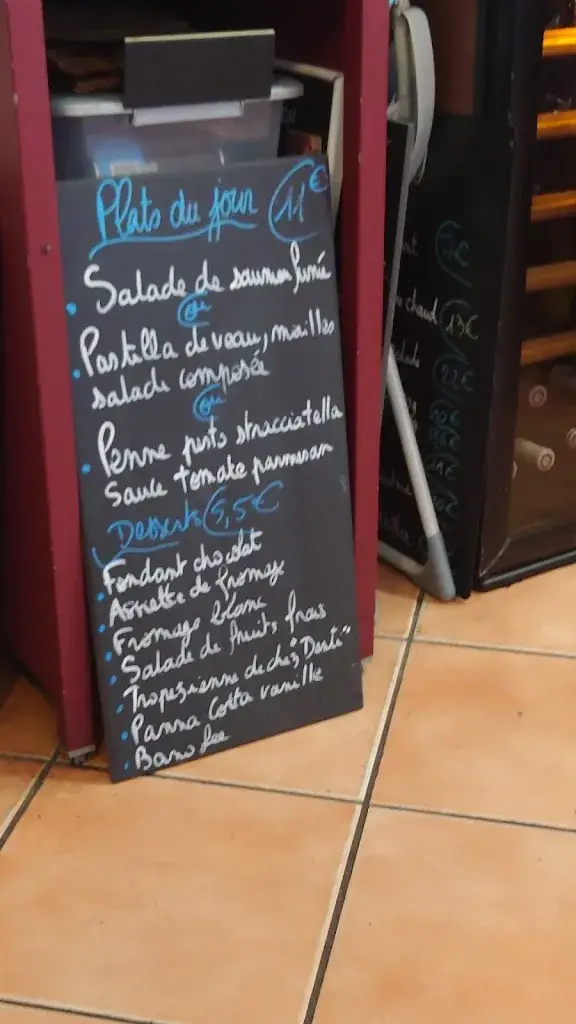 Plats du jour 11€
Salade de saumon fumé
ou
Pastilla de veau, mailles
salade composée
ou
Penne pesto stracciatella
Sauce tomate parmesan
Desserts 5,5€
Fondant chocolat
Assiette de fromage
Fromage blanc
Salade de fruits frais
Tropezienne de chez "Denti"
Panna Cotta vanille
Banoffee
chaud 13€
22€